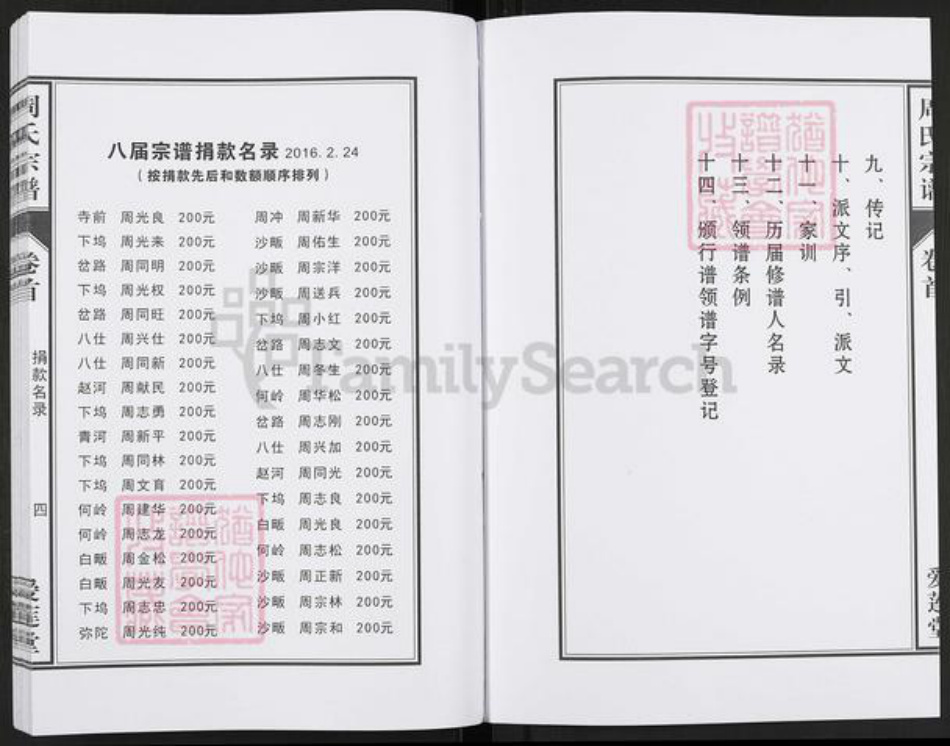 周氏宗谱
卷首
捐款名录
四
爱莲堂
八届宗谱捐款名录 2016. 2. 24
（按捐款先后和数额顺序排列）
寺前 周光良 200元
下坞 周光来 200元
岔路 周同明 200元
下坞 周光权 200元
岔路 周同旺 200元
八仕 周兴仕 200元
八仕 周同新 200元
赵河 周献民 200元
下坞 周志勇 200元
青河 周新平 200元
下坞 周同林 200元
下坞 周文育 200元
何岭 周建华 200元
何岭 周志龙 200元
白畈 周金松 200元
白畈 周光友 200元
下坞 周志忠 200元
弥陀 周光纯 200元
周冲 周新华 200元
沙畈 周佑生 200元
沙畈 周宗洋 200元
沙畈 周送兵 200元
下坞 周小红 200元
岔路 周志文 200元
八仕 周冬生 200元
何岭 周华松 200元
岔路 周志刚 200元
八仕 周兴加 200元
赵河 周同光 200元
下坞 周志良 200元
白畈 周光良 200元
何岭 周志松 200元
沙畈 周正新 200元
沙畈 周宗林 200元
沙畈 周宗和 200元
九、传记
十、派文序、引、派文
十一、家训
十二、历届修谱人名录
十三、领谱条例
十四、颁行谱领谱字号登记
周氏宗谱
卷首
爱莲堂
FamilySearch